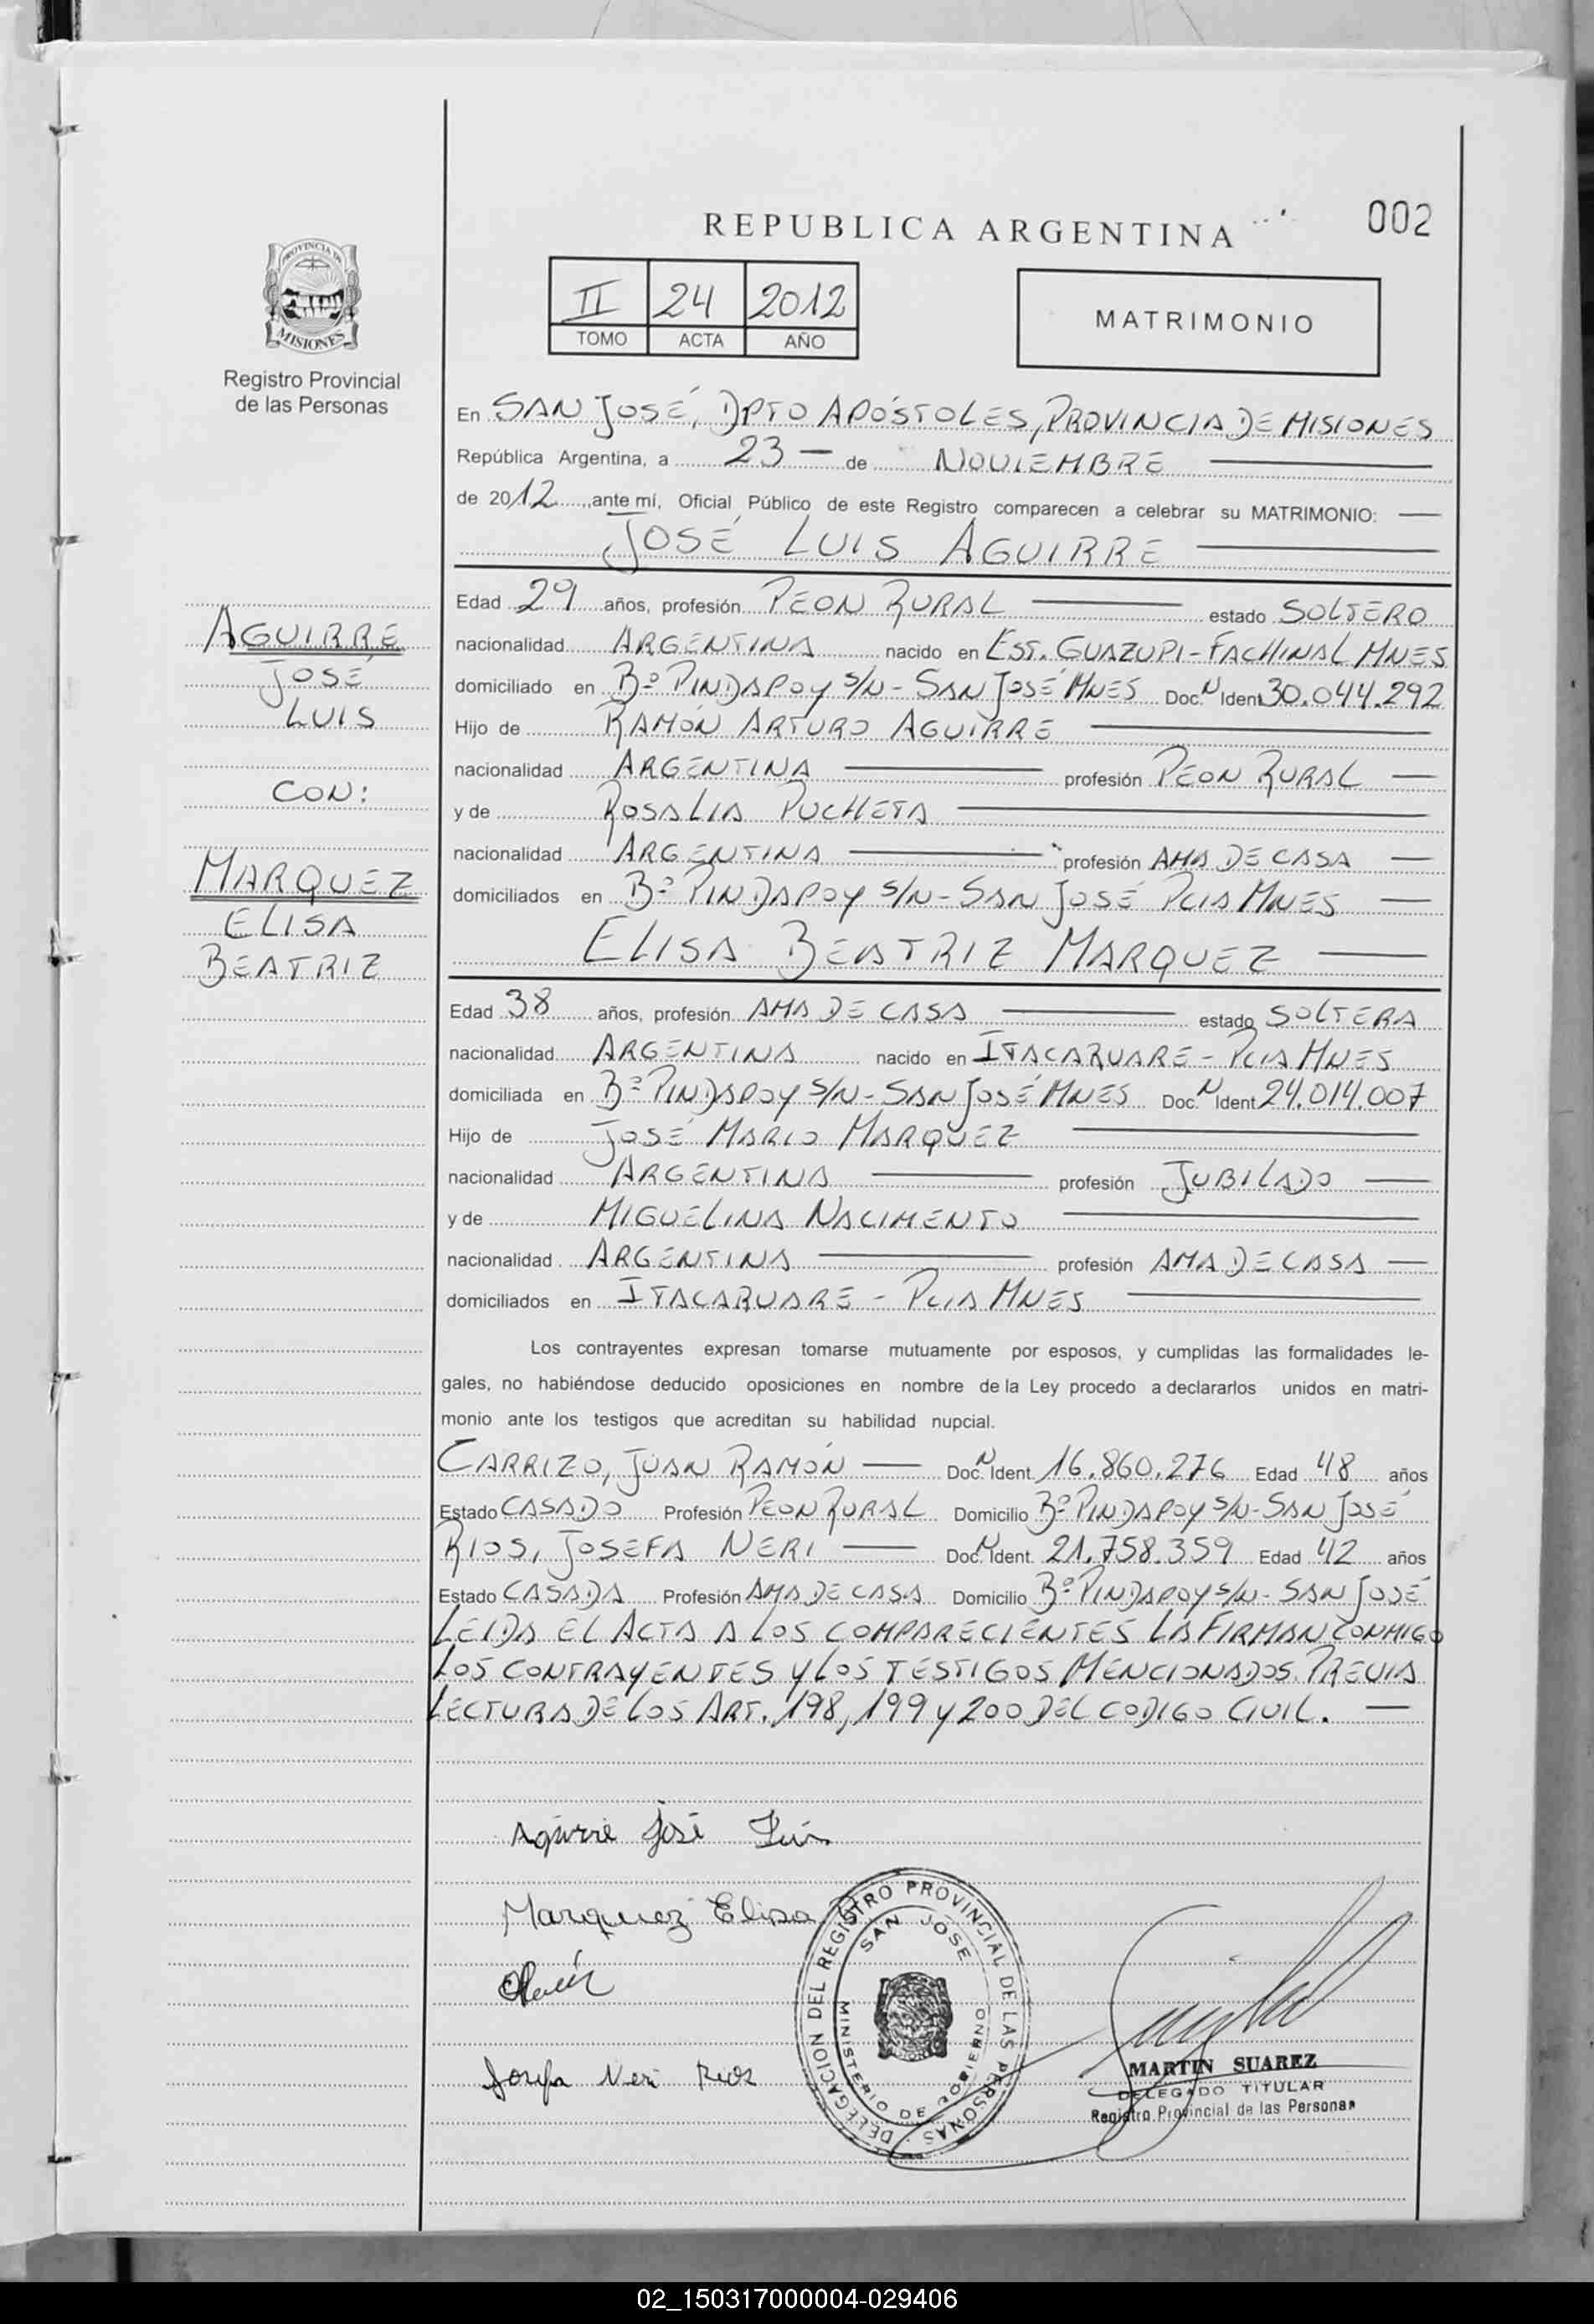 REPUBLICA ARGENTINA
002
PROVINCIA DE
MISIONES
Registro Provincial
de las Personas
II 24 2012
TOMO ACTA AÑO
MATRIMONIO
En SAN JOSÉ, DPTO APÓSTOLES, PROVINCIA DE MISIONES
República Argentina, a 23 — de NOVIEMBRE —
de 2012, ante mí, Oficial Público de este Registro comparecen a celebrar su MATRIMONIO: —
JOSÉ LUIS AGUIRRE —
AGUIRRE
JOSÉ
LUIS
CON:
MARQUEZ
ELISA
BEATRIZ
Edad 29 años, profesión PEON RURAL — estado SOLTERO
nacionalidad ARGENTINA nacido en EST. GUAZUPI - FACHINAL MNES
domiciliado en Bº PINDAPOY S/N - SAN JOSÉ MNES Doc. N Ident 30.044.292
Hijo de RAMÓN ARTURO AGUIRRE —
nacionalidad ARGENTINA — profesión PEON RURAL —
y de ROSALIA PUCHETA —
nacionalidad ARGENTINA — profesión AMA DE CASA —
domiciliados en Bº PINDAPOY S/N - SAN JOSÉ PCIA MNES —
ELISA BEATRIZ MARQUEZ —
Edad 38 años, profesión AMA DE CASA — estado SOLTERA
nacionalidad ARGENTINA nacido en ITACARUARE - PCIA MNES
domiciliada en Bº PINDAPOY S/N - SAN JOSÉ MNES Doc. N Ident 24.014.007
Hijo de JOSÉ MARIO MARQUEZ —
nacionalidad ARGENTINA — profesión JUBILADO —
y de MIGUELINA NACIMENTO —
nacionalidad ARGENTINA — profesión AMA DE CASA —
domiciliados en ITACARUARE - PCIA MNES —
Los contrayentes expresan tomarse mutuamente por esposos, y cumplidas las formalidades le-
gales, no habiéndose deducido oposiciones en nombre de la Ley procedo a declararlos unidos en matri-
monio ante los testigos que acreditan su habilidad nupcial.
CARRIZO, JUAN RAMÓN — Doc. N Ident. 16.860.276 Edad 48 años
Estado CASADO Profesión PEON RURAL Domicilio Bº PINDAPOY S/N - SAN JOSÉ
RIOS, JOSEFA NERI — Doc. N Ident. 21.758.359 Edad 42 años
Estado CASADA Profesión AMA DE CASA Domicilio Bº PINDAPOY S/N - SAN JOSÉ
LEIDA EL ACTA A LOS COMPARECIENTES LA FIRMAN CONMIGO
LOS CONTRAYENTES Y LOS TESTIGOS MENCIONADOS. PREVIA
LECTURA DE LOS ART. 198, 199 Y 200 DEL CODIGO CIVIL. —
Aguirre José Luis
Marquez Elisa B
Josefa Neri Rios
DELEGACION DEL REGISTRO PROVINCIAL DE LAS PERSONAS
SAN JOSE
MINISTERIO DE GOBIERNO
MARTIN SUAREZ
DELEGADO TITULAR
Registro Provincial de las Personas
02_150317000004-029406